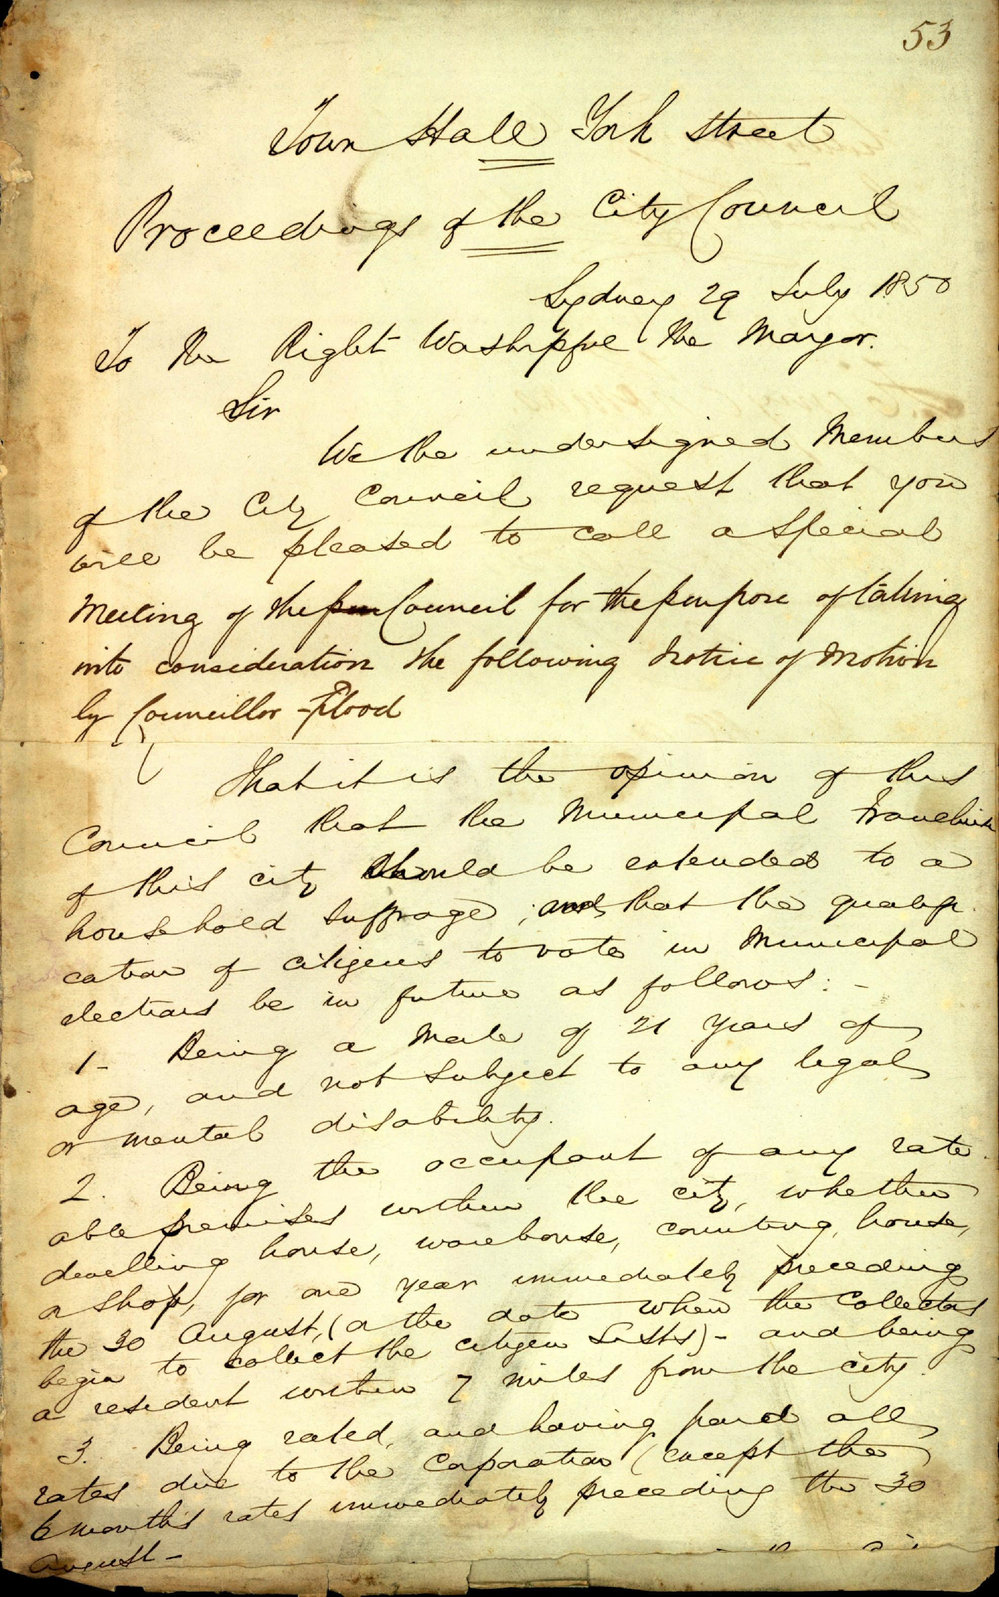 53
Town Hall York Street
Proceedings of the City Council
Sydney 29 July 1850
To the Right Worshipful the Mayor.
Sir
We the undersigned Members
of the City Council request that you
will be pleased to call a Special
Meeting of the Council for the purpose of taking
into consideration the following Notice of Motion
by Councillor Flood
That it is the opinion of this
Council that the Municipal Franchise
of this city should be extended to a
household suffrage, and that the qualifi-
cation of citizens to vote in Municipal
elections be in future as follows: -
1- Being a Male of 21 years of
age, and not subject to any legal
or mental disability.
2. Being the occupant of any rate
able premises within the city, whether
dwelling house, warehouse, counting house,
or shop, for one year immediately preceding
the 30 August, (or the date when the Collectors
begin to collect the citizen Lists) - and being
a resident within 7 miles from the city.
3. Being rated, and having paid all
rates due to the Corporation (except the
6 months rates immediately preceding the 30
August -